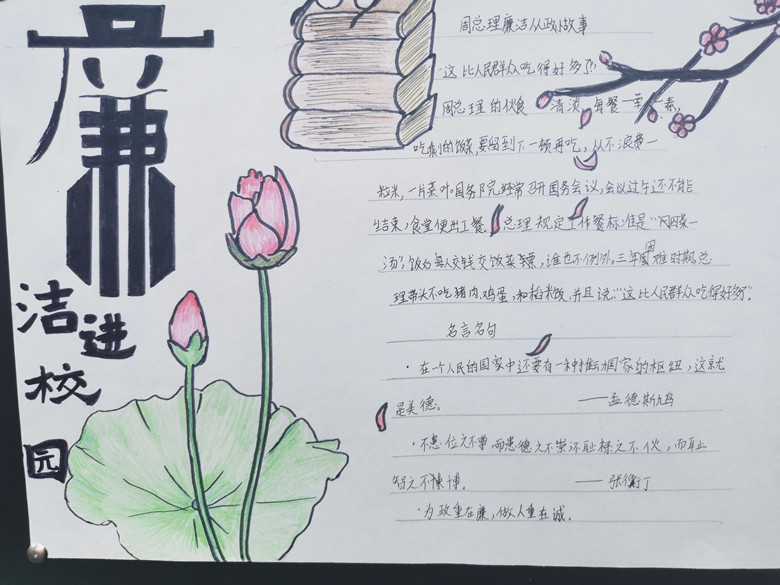 廉
洁进
校
园
周总理廉洁从政故事
"这比人民群众吃得好多了!"
周总理的伙食清淡,每餐一荤一素,
吃剩的饭菜,要留到下一顿再吃,从不浪费一
粒米,一片菜叶。国务院经常召开国务会议,会议过午还不能
结束,食堂便出工餐。总理规定工作餐标准是"四菜一
汤",饭后每人交钱交饭菜票,谁也不例外。三年困难时期,总
理带头不吃猪肉、鸡蛋,和稻米饭,并且说:"这比人民群众吃得好多了".
名言名句
·在一个人民的国家中还要有一种推动国家的枢纽,这就
是美德。 ——孟德斯鸠
·不患位之不尊,而患德之不崇;不耻禄之不伙,而耻
智之不博。 ——张衡
·为政重在廉,做人重在诚。